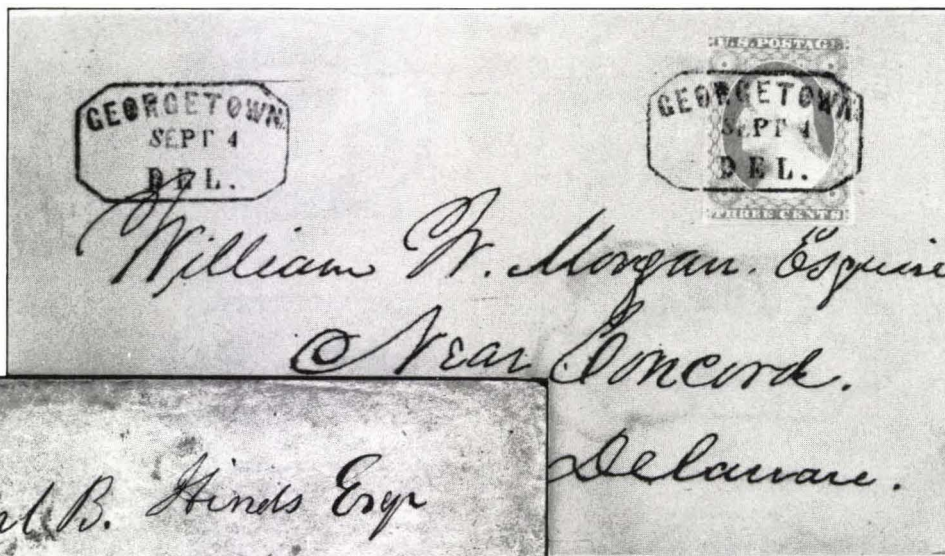 GEORGETOWN.
SEPT 4
DEL.
U.S. POSTAGE
GEORGETOWN.
SEPT 4
DEL.
THREE CENTS
William W. Morgan. Esquire
Near Concord.
Delaware.
B. Hinds Esqr